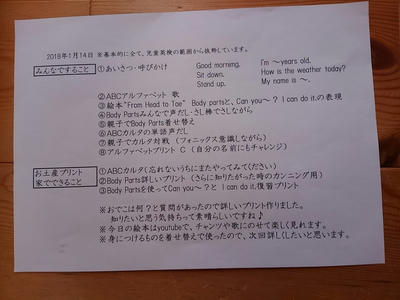 2018年1月14日 ※基本的に全て、児童英検の範囲から抜粋しています。
みんなですること ①あいさつ・呼びかけ Good morning. I'm ～years old.
Sit down. How is the weather today?
Stand up. My name is ～.
②ABCアルファベット 歌
③絵本"From Head to Toe" Body partsと、Can you～? I can do it.の表現
④Body Partsみんなで声だし・さし棒でさしながら
⑤親子でBody Parts着せ替え
⑥ABCカルタの単語声だし
⑦親子でカルタ対戦 (フォニックス意識しながら)
⑧アルファベットプリント C (自分の名前にもチャレンジ)
お土産プリント ①ABCカルタ(忘れないうちにまたやってみてください)
家でできること ②Body Parts詳しいプリント (さらに知りたがった時のカンニング用)
③Body Partsを使ってCan you～? と I can do it.復習プリント
※おでこは何?と質問があったので詳しいプリント作りました。
知りたいと思う気持ちって素晴らしいですね♪
※今日の絵本はyoutubeで、チャンツや歌にのせて楽しく見れます。
※身につけるものを着せ替えで使ったので、次回詳しくしたいと思います。